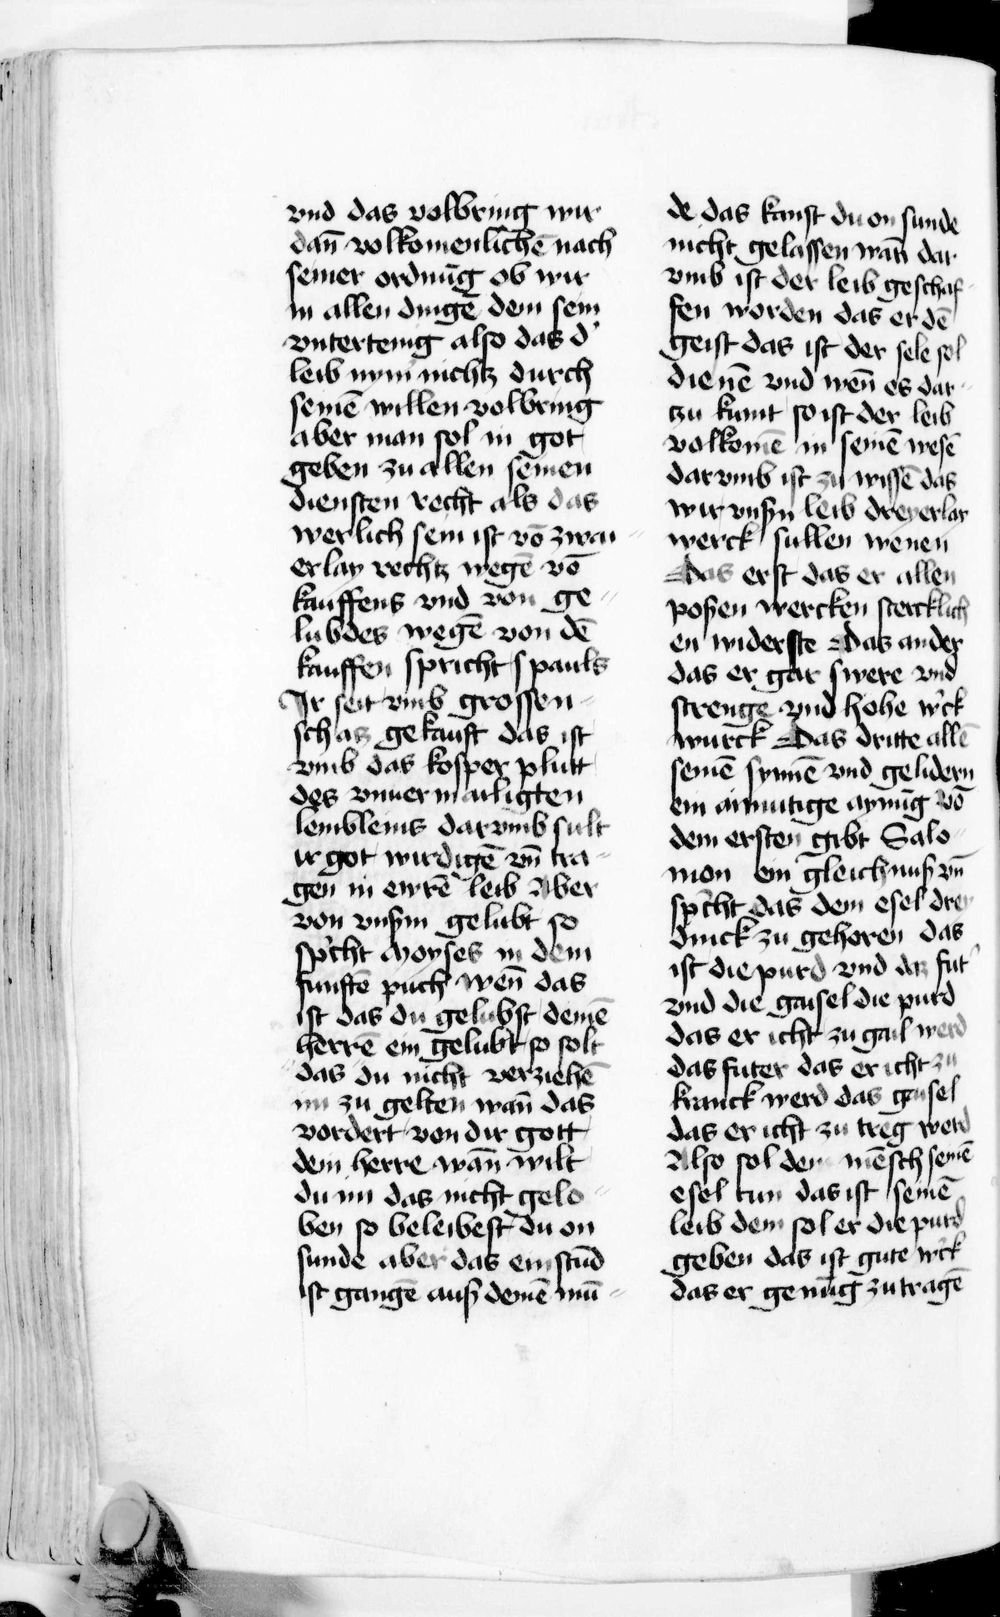 vnd das volbring wir
dañ volkomenlichē nach
seiner ordnūg ob wir
in allen dingē dem sein
vntertenig also das d'
leib nym nichtz durch
seinē willen volbring
aber man sol in got
geben zu allen seinen
diensten recht als das
werlich sein ist vō zwai-
erlay rechtz wegē vō
kauffens vnd von ge-
lubdes wegē von dē
kauffen spricht s pauls
Ir seit vmb grossen-
schatz gekauft das ist
vmb das kosper plutt
des vnuermailigten
lembleins darvmb sult
ir got wirdigē vñ tra-
gen in ewrē leib Aber
von vnserm gelubt so
spricht Moyses in dem
funftē puch wen̄ das
ist das du gelubst deinē
herrē ein gelubt so solt
das du nicht verziehē
im zu gelten wañ das
vordert von dir gott
dein herre wañ wilt
du im das nicht gelo-
ben so beleibest du on
sunde aber das ein stūd
ist gangē auß deinē mū-
de das kanst du on sunde
nicht gelassen wañ dar
vmb ist der leib geschaf-
fen worden das er dē
geist das ist der sele sol
dienē vnd wen̄ es dar-
zu kumt so ist der leib
volkomē in seinē wesē
darvmb ist zu wissē das
wir vnsern leib dreyerlay
werck sullen wenen
Das erst das er allen
posen wercken stercklich
en widerste Das ander
das er gar swere vnd
strenge vnd hohe w'ck
wurck Das dritte allē
seinē synnē vnd gelidern
ein ainmutige aynūg Vō
dem ersten gibt Salo-
mon ein gleichnuß vñ
spricht das dem esel drey
dinck zu gehoren das
ist die purd vnd daz fut'
vnd die gaisel die purd
das er icht zu gail werd
das futer das er icht zu
kranck werd das gaisel
das er icht zu treg werd
Also sol dem mēsch seinē
esel tun das ist seinē
leib dem sol er die purd
geben das ist gute w'ck
das er genūg zu tragē